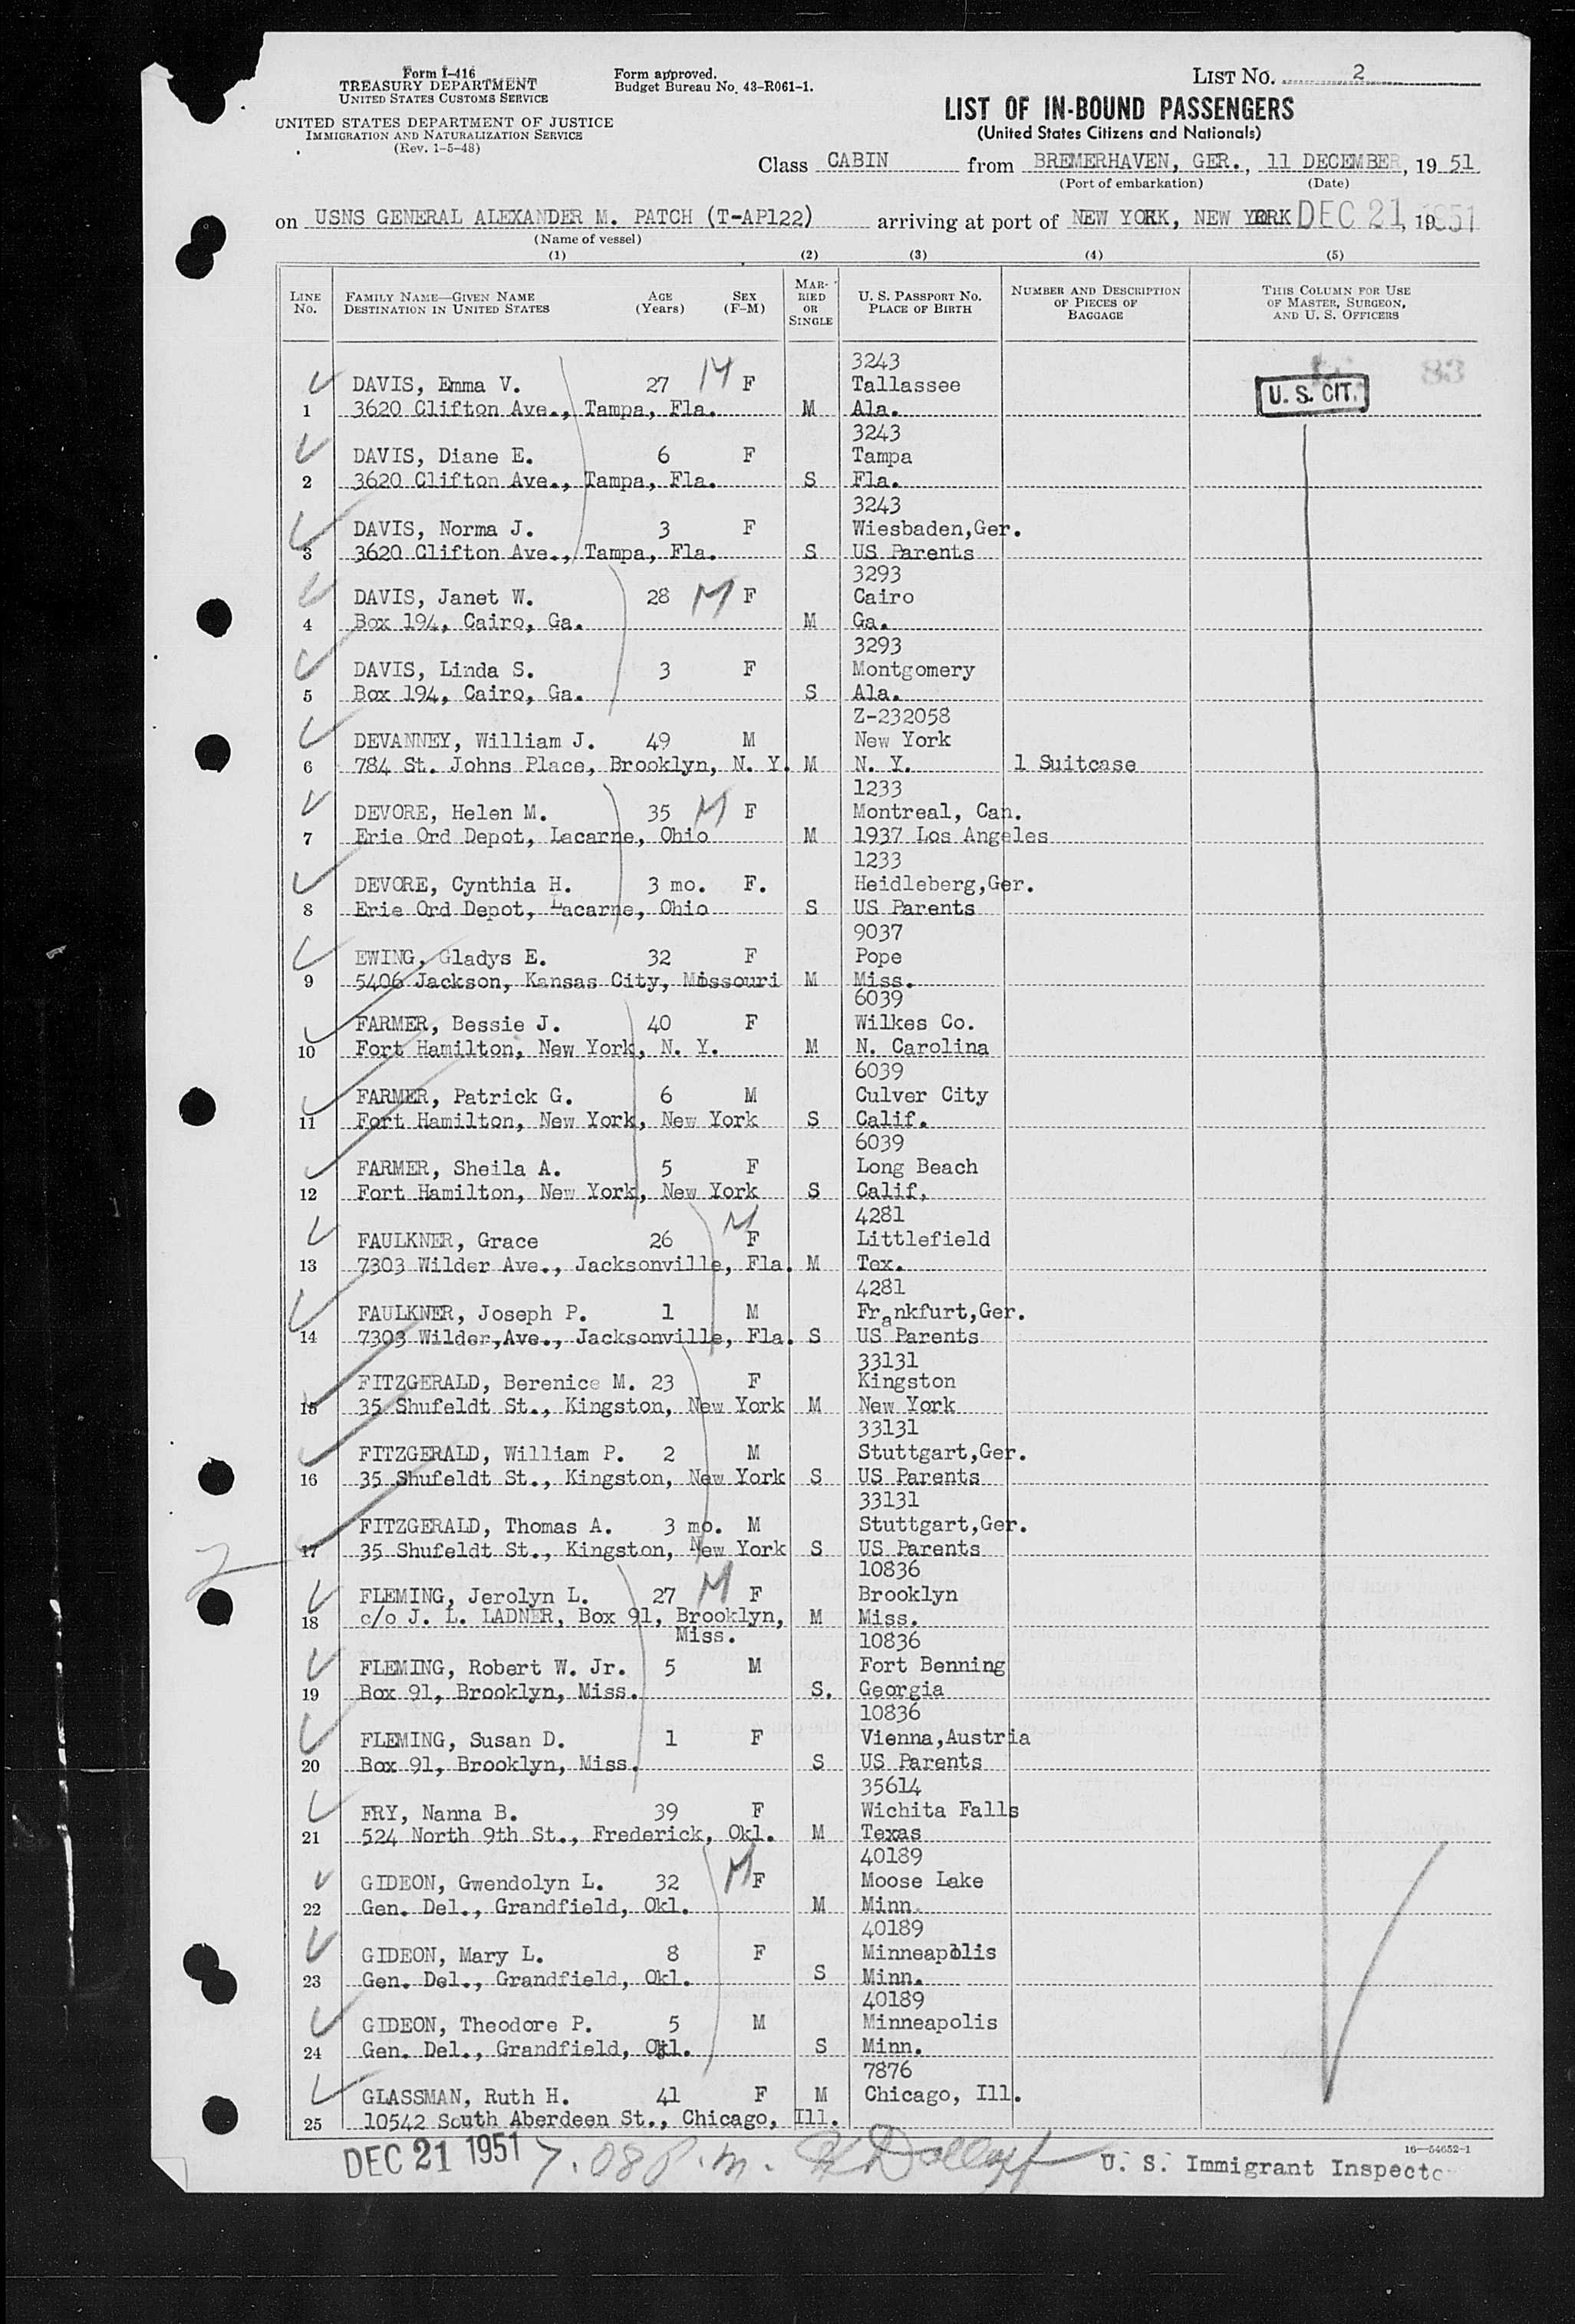 Form I-416
TREASURY DEPARTMENT
UNITED STATES CUSTOMS SERVICE
UNITED STATES DEPARTMENT OF JUSTICE
IMMIGRATION AND NATURALIZATION SERVICE
(Rev. 1-5-48)
Form approved.
Budget Bureau No. 43-R061-1.
LIST NO. 2
LIST OF IN-BOUND PASSENGERS
(United States Citizens and Nationals)
Class CABIN from BREMERHAVEN, GER., 11 DECEMBER, 19 51
(Port of embarkation) (Date)
on USNS GENERAL ALEXANDER M. PATCH (T-AP122) arriving at port of NEW YORK, NEW YORK DEC 21, 1951
(Name of vessel)
(1) (2) (3) (4) (5)
LINE NO. FAMILY NAME—GIVEN NAME DESTINATION IN UNITED STATES AGE (Years) SEX (F-M) MARRIED OR SINGLE U. S. PASSPORT NO. PLACE OF BIRTH NUMBER AND DESCRIPTION OF PIECES OF BAGGAGE THIS COLUMN FOR USE OF MASTER, SURGEON, AND U. S. OFFICERS
3243 83
DAVIS, Emma V. 27 M F Tallassee U. S. CIT.
1 3620 Clifton Ave., Tampa, Fla. M Ala.
3243
DAVIS, Diane E. 6 F Tampa
2 3620 Clifton Ave., Tampa, Fla. S Fla.
3243
DAVIS, Norma J. 3 F Wiesbaden,Ger.
3 3620 Clifton Ave., Tampa, Fla. S US Parents
3293
DAVIS, Janet W. 28 M F Cairo
4 Box 194, Cairo, Ga. M Ga.
3293
DAVIS, Linda S. 3 F Montgomery
5 Box 194, Cairo, Ga. S Ala.
Z-232058
DEVANNEY, William J. 49 M New York
6 784 St. Johns Place, Brooklyn, N. Y. M N. Y. 1 Suitcase
1233
DEVORE, Helen M. 35 M F Montreal, Can.
7 Erie Ord Depot, Lacarne, Ohio M 1937 Los Angeles
1233
DEVORE, Cynthia H. 3 mo. F. Heidleberg,Ger.
8 Erie Ord Depot, Lacarne, Ohio S US Parents
9037
EWING, Gladys E. 32 F Pope
9 5406 Jackson, Kansas City, Missouri M Miss.
6039
FARMER, Bessie J. 40 F Wilkes Co.
10 Fort Hamilton, New York, N. Y. M N. Carolina
6039
FARMER, Patrick G. 6 M Culver City
11 Fort Hamilton, New York, New York S Calif.
6039
FARMER, Sheila A. 5 F Long Beach
12 Fort Hamilton, New York, New York S Calif,
4281
FAULKNER, Grace 26 M F Littlefield
13 7303 Wilder Ave., Jacksonville, Fla. M Tex.
4281
FAULKNER, Joseph P. 1 M Frankfurt,Ger.
14 7303 Wilder,Ave., Jacksonville, Fla. S US Parents
33131
FITZGERALD, Berenice M. 23 F Kingston
15 35 Shufeldt St., Kingston, New York M New York
33131
FITZGERALD, William P. 2 M Stuttgart,Ger.
16 35 Shufeldt St., Kingston, New York S US Parents
33131
FITZGERALD, Thomas A. 3 mo. M Stuttgart,Ger.
2 17 35 Shufeldt St., Kingston, New York S US Parents
10836
FLEMING, Jerolyn L. 27 M F Brooklyn
18 c/o J. L. LADNER, Box 91, Brooklyn, M Miss.
Miss. 10836
FLEMING, Robert W. Jr. 5 M Fort Benning
19 Box 91, Brooklyn, Miss. S. Georgia
10836
FLEMING, Susan D. 1 F Vienna,Austria
20 Box 91, Brooklyn, Miss. S US Parents
35614
FRY, Nanna B. 39 F Wichita Falls
21 524 North 9th St., Frederick, Okl. M Texas
40189
GIDEON, Gwendolyn L. 32 M F Moose Lake
22 Gen. Del., Grandfield, Okl. M Minn.
40189
GIDEON, Mary L. 8 F Minneapolis
23 Gen. Del., Grandfield, Okl. S Minn.
40189
GIDEON, Theodore P. 5 M Minneapolis
24 Gen. Del., Grandfield, Okl. S Minn.
7876
GLASSMAN, Ruth H. 41 F M Chicago, Ill.
25 10542 South Aberdeen St., Chicago, Ill.
16—54652-1
DEC 21 1951 7.08 P.m. U. S. Immigrant Inspecto